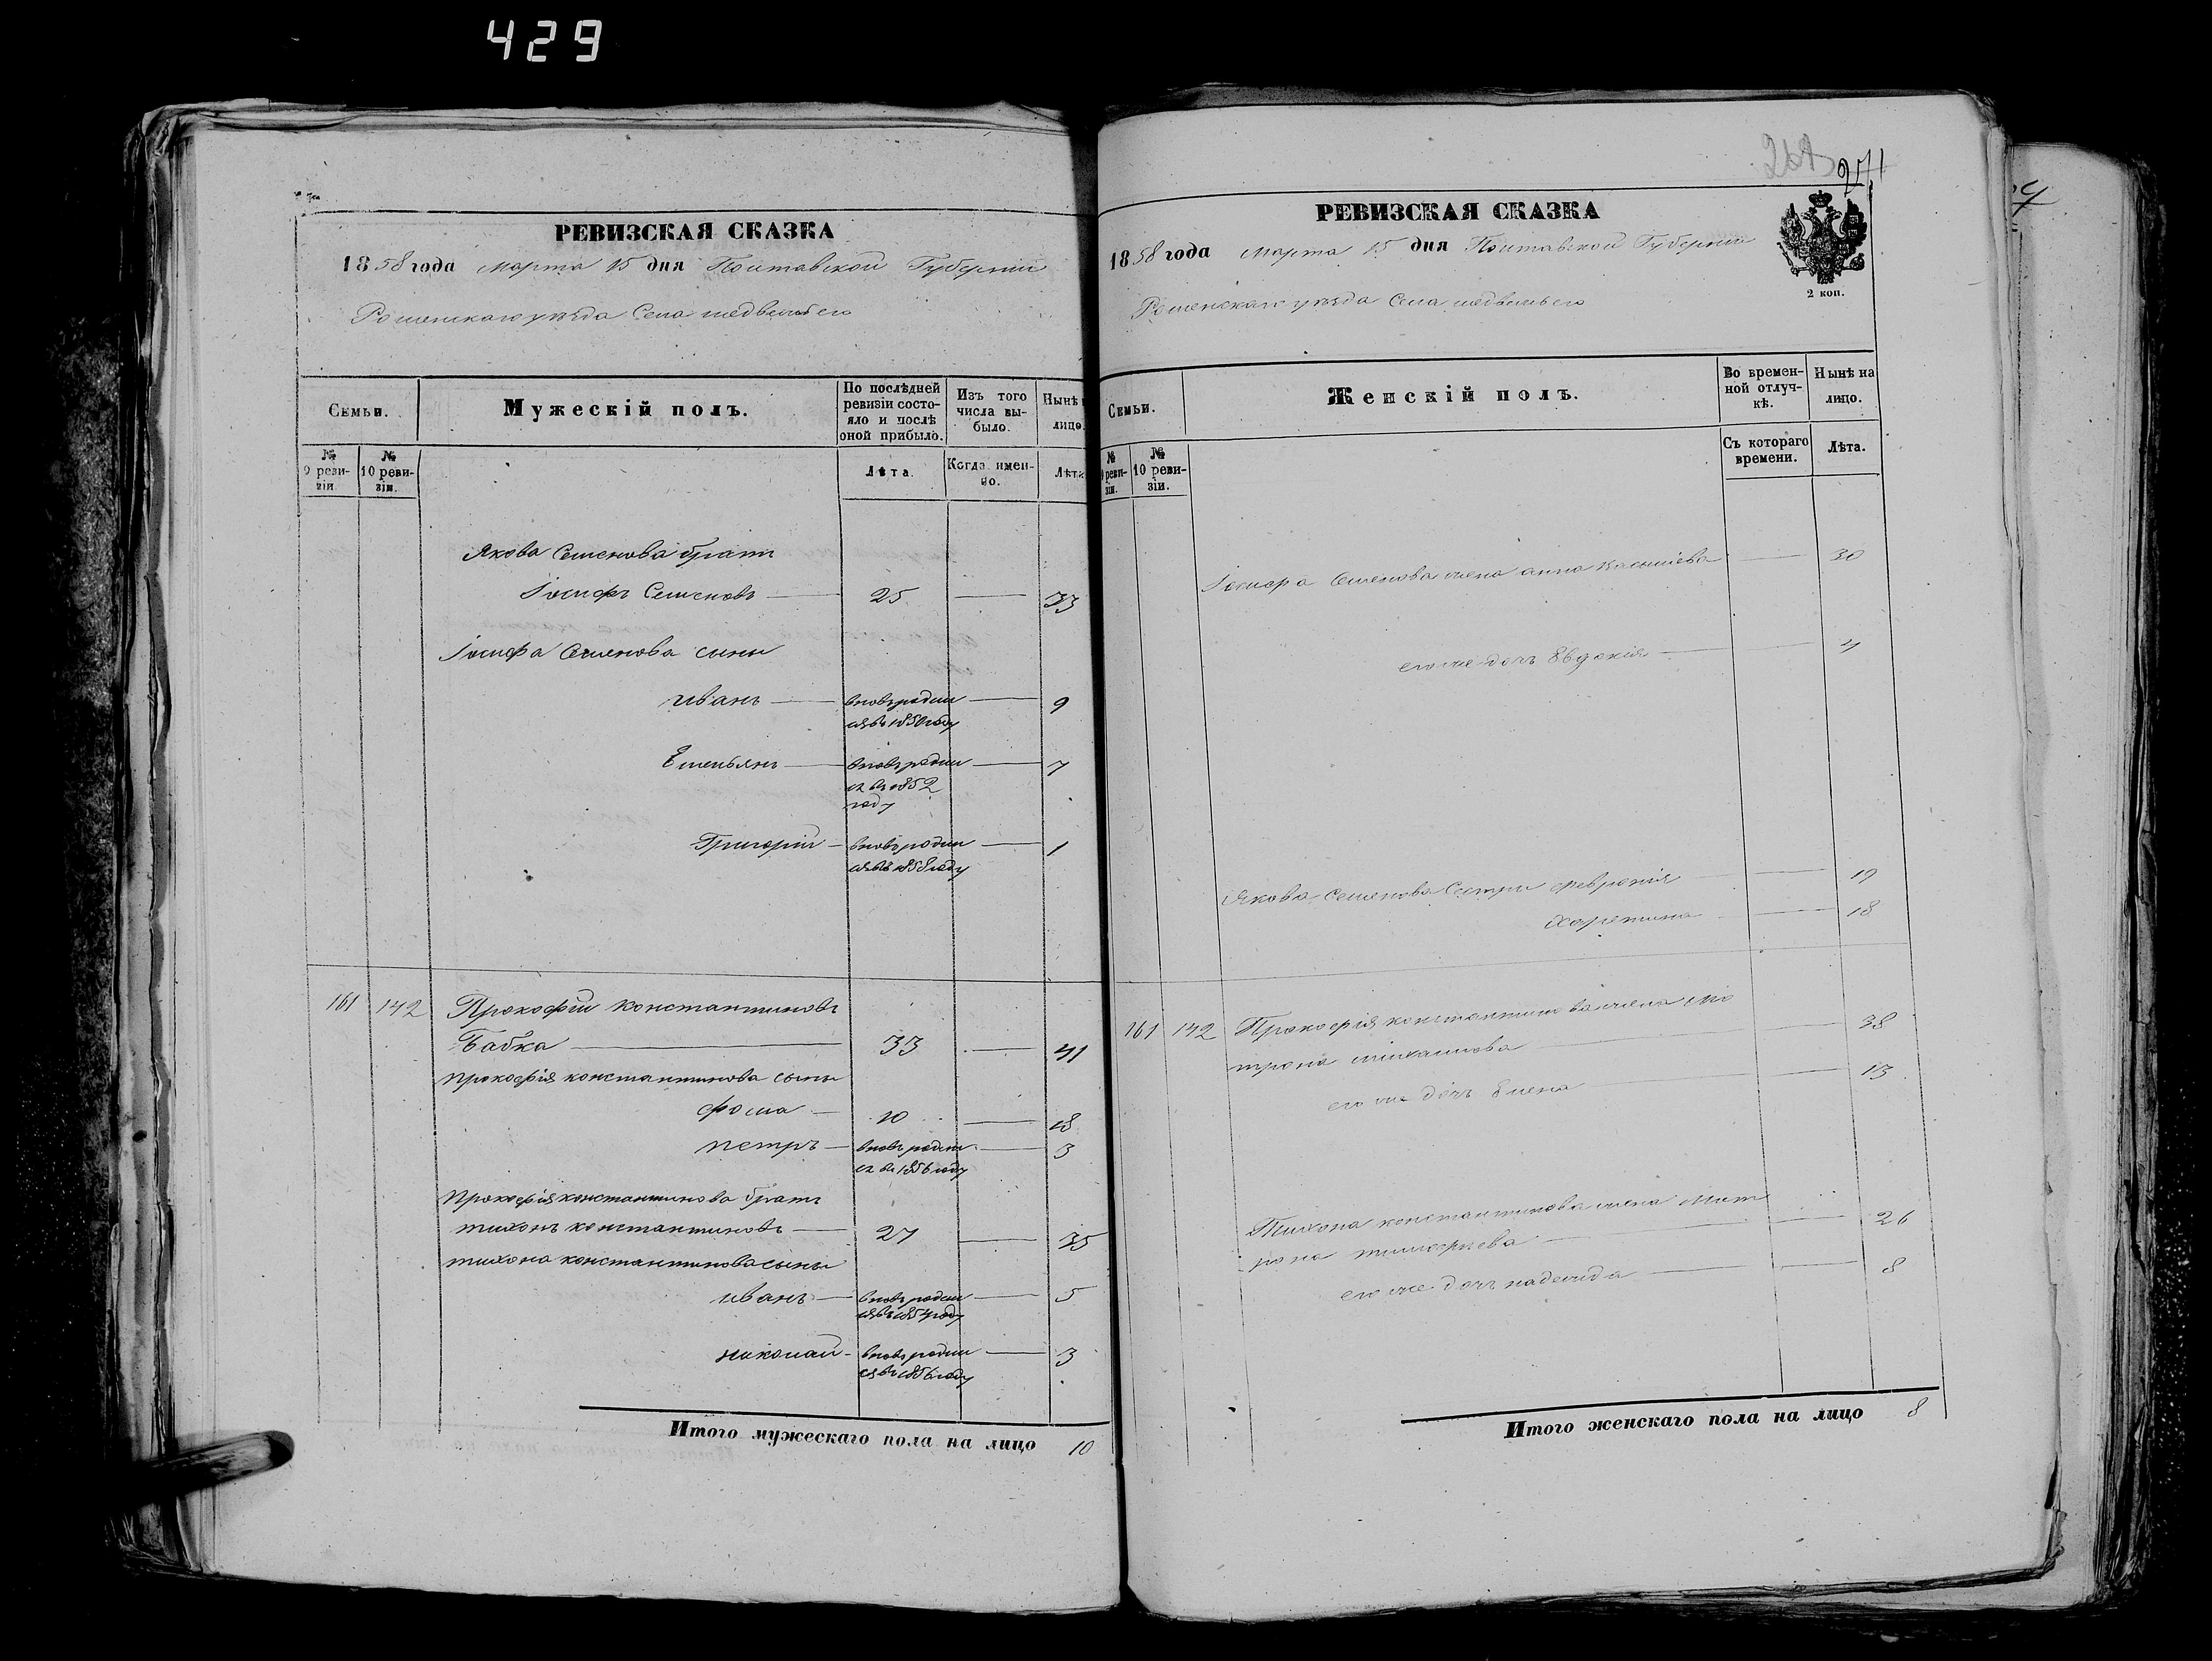 429
РЕВИЗСКАЯ СКАЗКА
1858 года Марта 15 дня Полтавской Губернии
Роменскаго уезда Села Медвежьего
Семьи.
Мужескій полъ.
По послѣдней ревизіи состояло и послѣ оной прибыло.
Изъ того числа выбыло.
Нынѣ
лицо.
№ 9 ревизіи.
№ 10 ревизіи.
Лѣта.
Когда именно.
Лѣта
Якова Семенова братъ
Іосифъ Семеновъ 25 — 33
Іосифа Семенова сыны
Иванъ вновь родился въ 1850 году — 9
Емельянъ вновь родился въ 1852 году — 7
Григорій вновь родился въ 1858 году — 1
161 142 Прокофій Константиновъ
Бабка 33 — 41
Прокофія Константинова сыны
Фома 10 — 18
Петръ вновь родился въ 1856 году — 3
Прокофія Константинова братъ
Тихонъ Константиновъ 27 — 35
Тихона Константинова сыны
Иванъ вновь родился въ 1854 году — 5
Николай вновь родился въ 1856 году — 3
Итого мужескаго пола на лицо 10
271
РЕВИЗСКАЯ СКАЗКА
1858 года Марта 15 дня Полтавской Губерніи
2 коп.
Роменскаго уезда Села Медвежьего
Семьи.
Женскій полъ.
Во временной отлучкѣ.
Нынѣ на лицо.
№ 9 ревизіи.
№ 10 ревизіи.
Съ котораго времени.
Лѣта.
Іосифа Семенова жена Анна — 30
его же дочь Евдокія — 4
Якова Семенова Сестры Феврония — 19
Харетина — 18
161 142 Прокофія Константинова жена Мо
трона — 38
его же дочь Елена — 13
Тихона Константинова жена Мот
рона Тимофеева — 26
его же дочь Надежда — 8
Итого женскаго пола на лицо 8